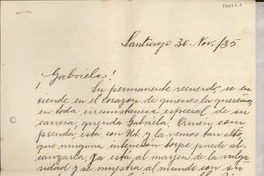 Santiago 30 Nov./35
¡Gabriela!
Su permanente recuerdo, se en
ciende en el corazón de quienes la queremos
en toda circunstancia especial, de su
carrera, querida Gabriela. Quien com
prenda, está con Ud. y la vemos tan alto,
que ninguna intención torpe puede al
canzarla. Ya está al margen de la vulga
ridad y se muestra al mundo con su